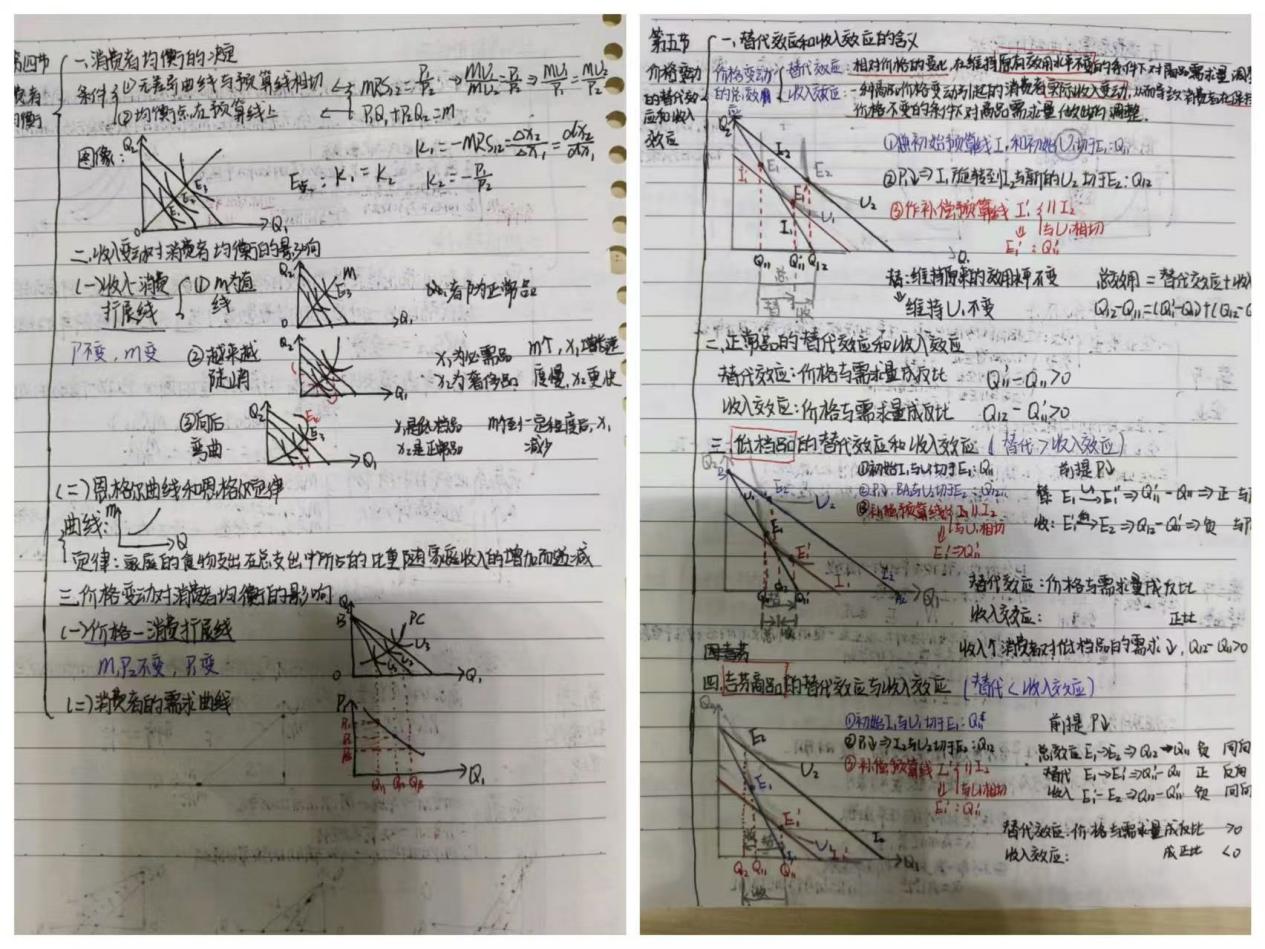 第四节
一、消费者均衡的决定
条件 ①无差异曲线与预算线相切 ⇐ MRS₁₂=P₁/P₂ ⇒ MU₁/MU₂=P₁/P₂ ⇒ MU₁/P₁=MU₂/P₂
②均衡点在预算线上 ⇐ P₁Q₁+P₂Q₂=m
图像: Q₂ Q₁ 0
K₁=-MRS₁₂=Δx₂/Δx₁=dx₂/dx₁
K₁=K₂ K₂=-P₁/P₂
二、收入变动对消费者均衡的影响
(一)收入-消费扩展线 ①m为直线
Q₂ m E₃ 0 Q₁
都为正常品
P不变,m变
②越来越陡峭
Q₂ Q₁
x₁为必需品 m↑,x₁增长速
x₂为奢侈品 度慢,x₂更快
③向后弯曲
Q₂ Q₁
x₁是低档品 m在到一定程度后,x₁
x₂是正常品 减少
(二)恩格尔曲线和恩格尔定律
曲线: m Q
定律:家庭的食物支出在总支出中所占的比重随家庭收入的增加而递减
三、价格变动对消费者均衡的影响
(一)价格-消费扩展线
m,P₂不变,P₁变
Q₂ B PC U₃ 0 Q₁
(二)消费者的需求曲线
P₁ Q₁₁ Q₁₂ Q₁₃ Q₁
第五节
价格变动的替代效应和收入效应
一、替代效应和收入效应的含义
价格变动的总效应
替代效应:相对价格的变化,在维持原有效用水平不变的条件下对商品需求量
收入效应:一种商品价格变动引起的消费者实际收入变动,从而导致消费者在保持
价格不变的条件下对商品需求量做出的调整.
初始预算线I₁和初始U₁切于E₁:Q₁₁
②P₁↓⇒I₁旋转到I₂与新的U₂切于E₂:Q₁₂
③作补偿预算线 I₁' ∥I₂
与U₁相切
E₁':Q₁₁'
Q₂ I₂ E₁ E₂ E₁' U₁ U₂ I₁ I₁'
Q₁₁ Q₁₁' Q₁₂ Q₁
总
替 收
替:维持原来的效用水平不变
维持U₁不变
总效用=替代效应+收入
二、正常品的替代效应和收入效应
替代效应:价格与需求量成反比 Q₁₁'-Q₁₁>0
收入效应:价格与需求量成反比 Q₁₂-Q₁₁'>0
三、低档品的替代效应和收入效应(替代>收入效应)
①初始I₁与U₁切于E₁:Q₁₁
②P₁↓,BA₂与U₂切于E₂:Q₁₂
③补偿预算线 I₁'∥I₂
与U₁相切
E₁'⇒Q₁₁'
前提P₁↓
替:E₁→E₁'⇒Q₁₁'-Q₁₁⇒正
收:E₁'→E₂⇒Q₁₂-Q₁₁'⇒负
替代效应:价格与需求量成反比
收入效应: 正比
收入↑,消费者对低档品的需求↓,Q₁₂-Q₁₁>0
四、吉芬商品的替代效应与收入效应(替代<收入效应)
①初始I₁与U₁切于E₁:Q₁₁
②P₁↓⇒I₂与U₂切于E₂:Q₁₂
③补偿预算线 I₁'∥I₂
与U₁相切
E₁':Q₁₁'
前提P₁↓
总效应E₁→E₂⇒Q₁₂-Q₁₁ 负 同向
替代 E₁→E₁'⇒Q₁₁'-Q₁₁ 正 反向
收入 E₁'-E₂⇒Q₁₂-Q₁₁' 负 同向
Q₂ E₂ U₂ E₁ E₁' U₁ I₁' I₂ Q₁
Q₁₂ Q₁₁ Q₁₁'
收
替代效应:价格与需求量成反比 >0
收入效应: 成正比 <0